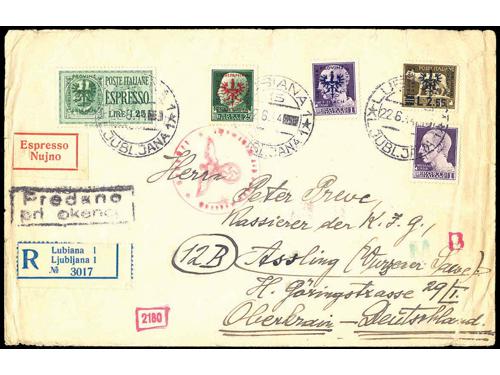 POSTE ITALIANE
ESPRESSO
LIRE 1.25
LUBIANA
LJUBLJANA 1
22.6.44
L. 2.55
Espresso
Nujno
Predano
pri okencu
R
Lubiana 1
Ljubljana 1
№ 3017
Herrn Peter Preve,
Kassierer der K.I.G.,
12B
Assling (Wurzener Save)
H. Göringstrasse 29/I.
Oberkrain - Deutschland.
B
2180